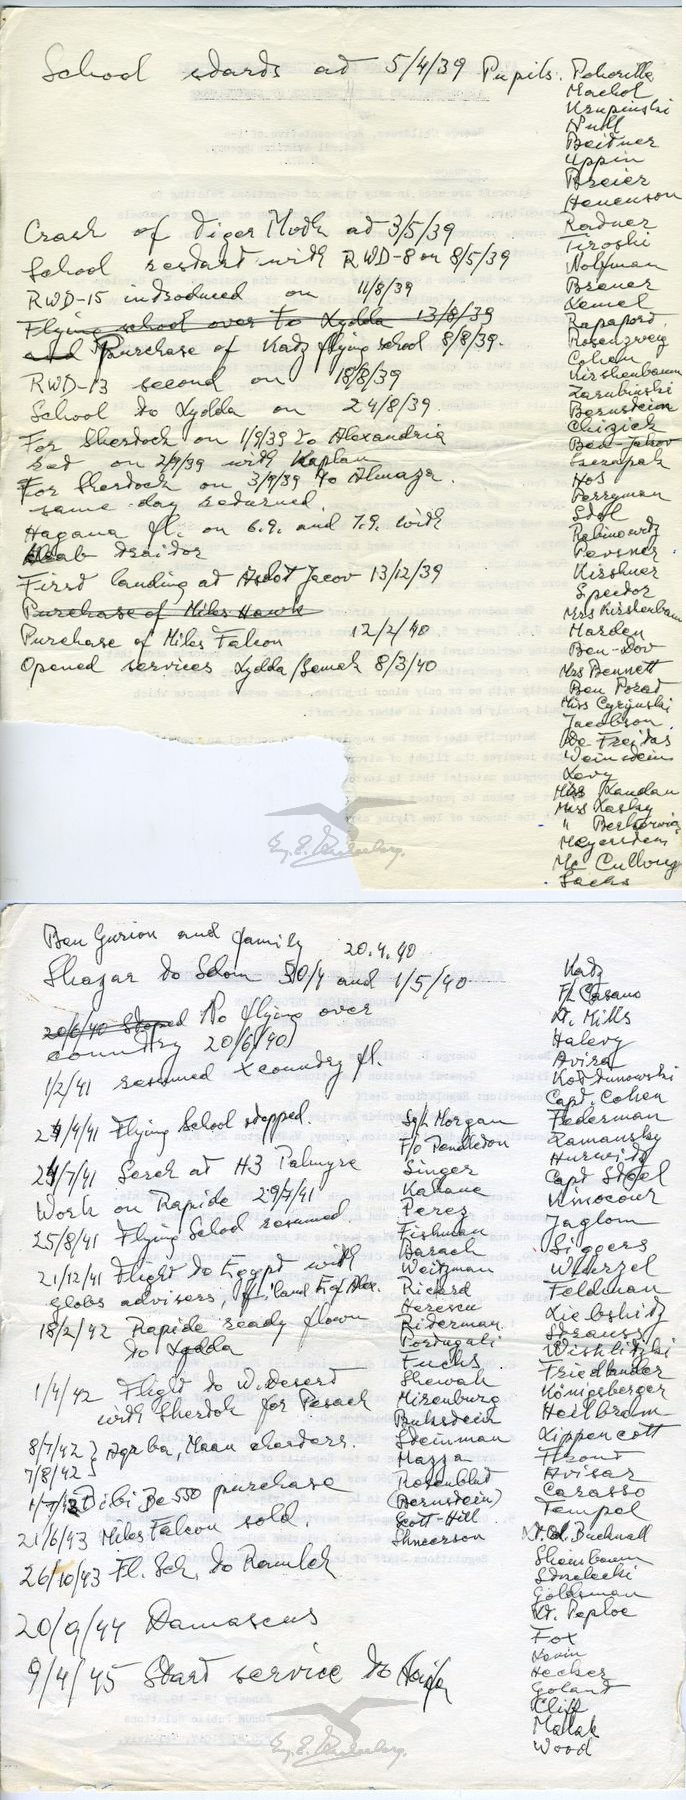 School starts at 5/4/39 Pupils. Pokorilla
Machol
Krupinski
Null
Beitner
Uppin
Breier
Henenson
Radner
Tiroshi
Wolfman
Brener
Lemel
Rapaport
Rosenzweig
Cohen
Kirshenbaum
Zarubinski
Bernstein
Chizick
Ben-Jakov
Szczupak
Hos
Perryman
Stol
Rabinowitz
Pevsner
Kirshner
Spector
Mrs Kirshenbaum
Marden
Ben-Dov
Mrs Bennett
Ben Porat
Miss Cyrynski
Jacobson
De Freitas
Weinstein
Levy
Miss Landau
Miss Lasky
" Berkowitz
Mayerstein
Mc Cullong
Sachs
Crash of Tiger Moth at 3/5/39
School restart with RWD-8 on 8/5/39
RWD-15 introduced on 11/8/39
Flying school over to Lydda 13/8/39
and Purchase of Katz flying school 8/8/39.
RWD-13 second on 18/8/39
School to Lydda on 24/8/39
For Sherdock on 1/9/39 to Alexandria
ret on 2/9/39 with Kaplan
For Sherdock on 3/9/39 to Almaza.
same day returned.
Hagana fl. on 6.9. and 7.9. with
Arab traitor
First landing at Asdot Jacov 13/12/39
Purchase of Miles Hawk
Purchase of Miles Falcon 12/2/40
Opened services Lydda/Semek 8/3/40
Ben Gurion and family 20.4.40
Shazar to Sdom 30/4 and 1/5/40
20/6/40 Stoped No flying over
country 20/6/40
1/2/41 resumed X country fl.
24/4/41 Flying School stopped.
24/7/41 Serch at H3 Palmyre
Work on Rapide 29/7/41
25/8/41 Flying School resumed
21/12/41 Flight to Egypt with
globs advisers,
18/2/42 Rapide ready flown
to Lydda
1/4/42 Flight to W. desert
with Sherdok for Pesach
8/7/42 } Aqaba, Maan charters.
7/8/42 }
Bibi Be 550 purchase
21/6/43 Miles Falcon sold.
26/10/43 Fl. Sch. to Ramleh
20/9/44 Damascus
9/4/45 Start service to Haifa
Sgt. Morgan
F/o Pendleton
Singer
Kahane
Perez
Fishman
Barach
Weitzman
Rickard
Herescu
Riderman
Portugali
Fuchs
Shewak
Mirenburg
Buhstein
Steinman
Mazza
Rosenblat
(Bernstein)
Scott-Hill
Shneerson
Katz
F/L Casano
Lt. Mills
Halevy
Avira
Kotdunowski
Capt. Cohen
Federman
Lamansky
Hurwitz
Capt Steel
Winocour
Jaglom
Siggers
Whurzel
Feldman
Liebshitz
Strauss
Wishlitzki
Friedlander
Königsberger
Heilbronn
Lippencott
Front
Avisar
Carasso
Tempel
Lt. Col. Bucknall
Shoinbaum
Strelecki
Goldsman
Lt. Peploe
Fox
Levin
Hecker
Golani
Cliff
Malak
Wood